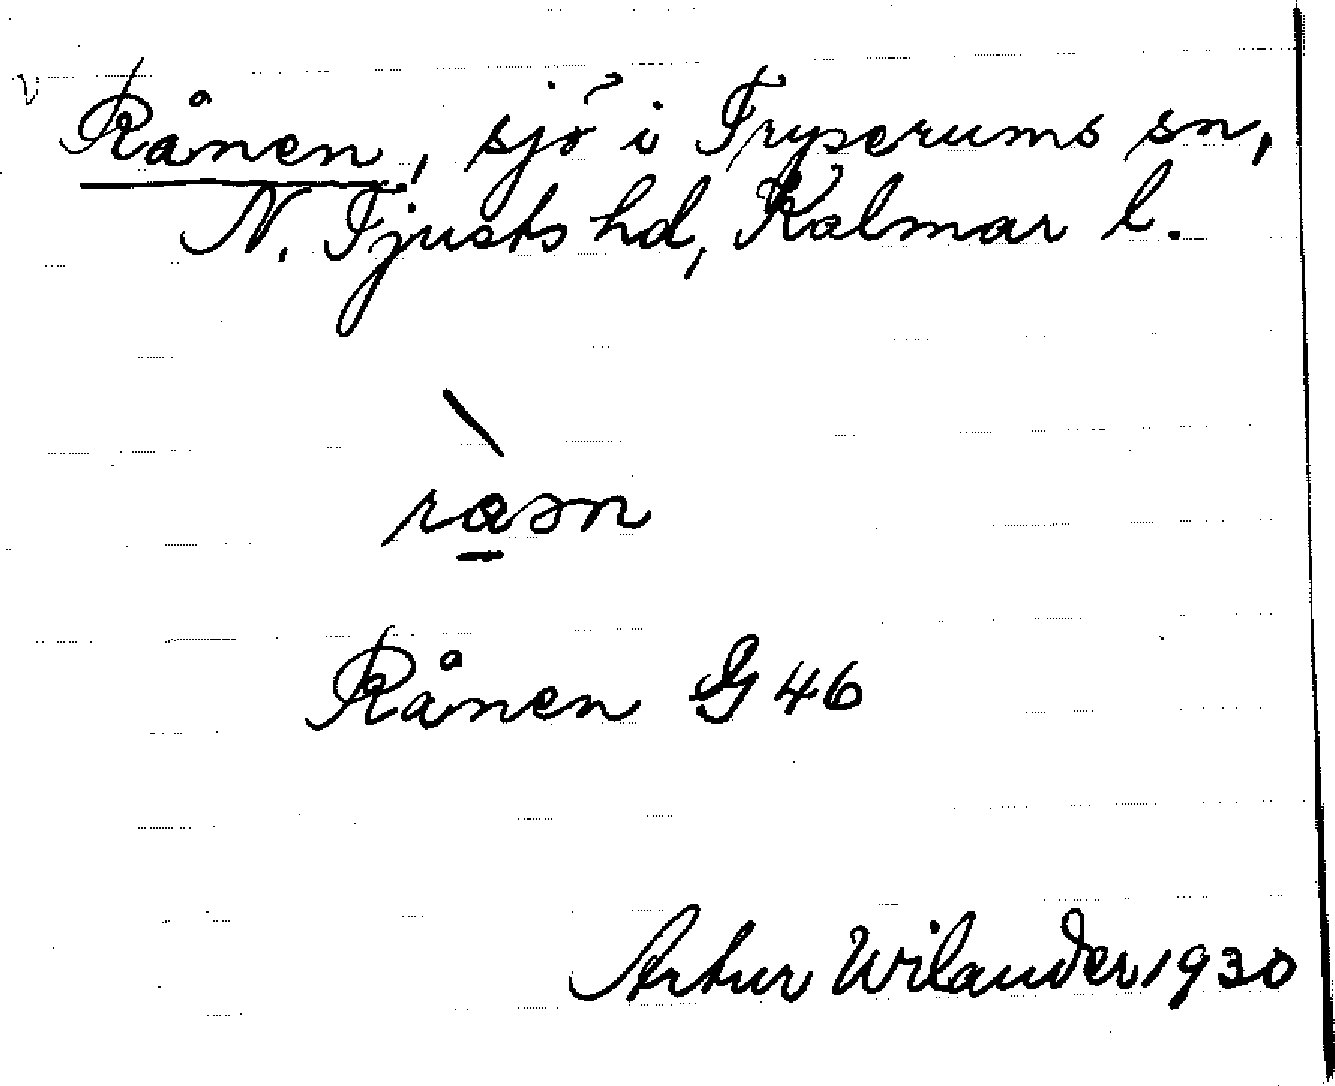 v
Rånen, sjö i Tryserums sn,
N. Tjusts hd, Kalmar l.
Rånen G 46
Artur Wilander 1930